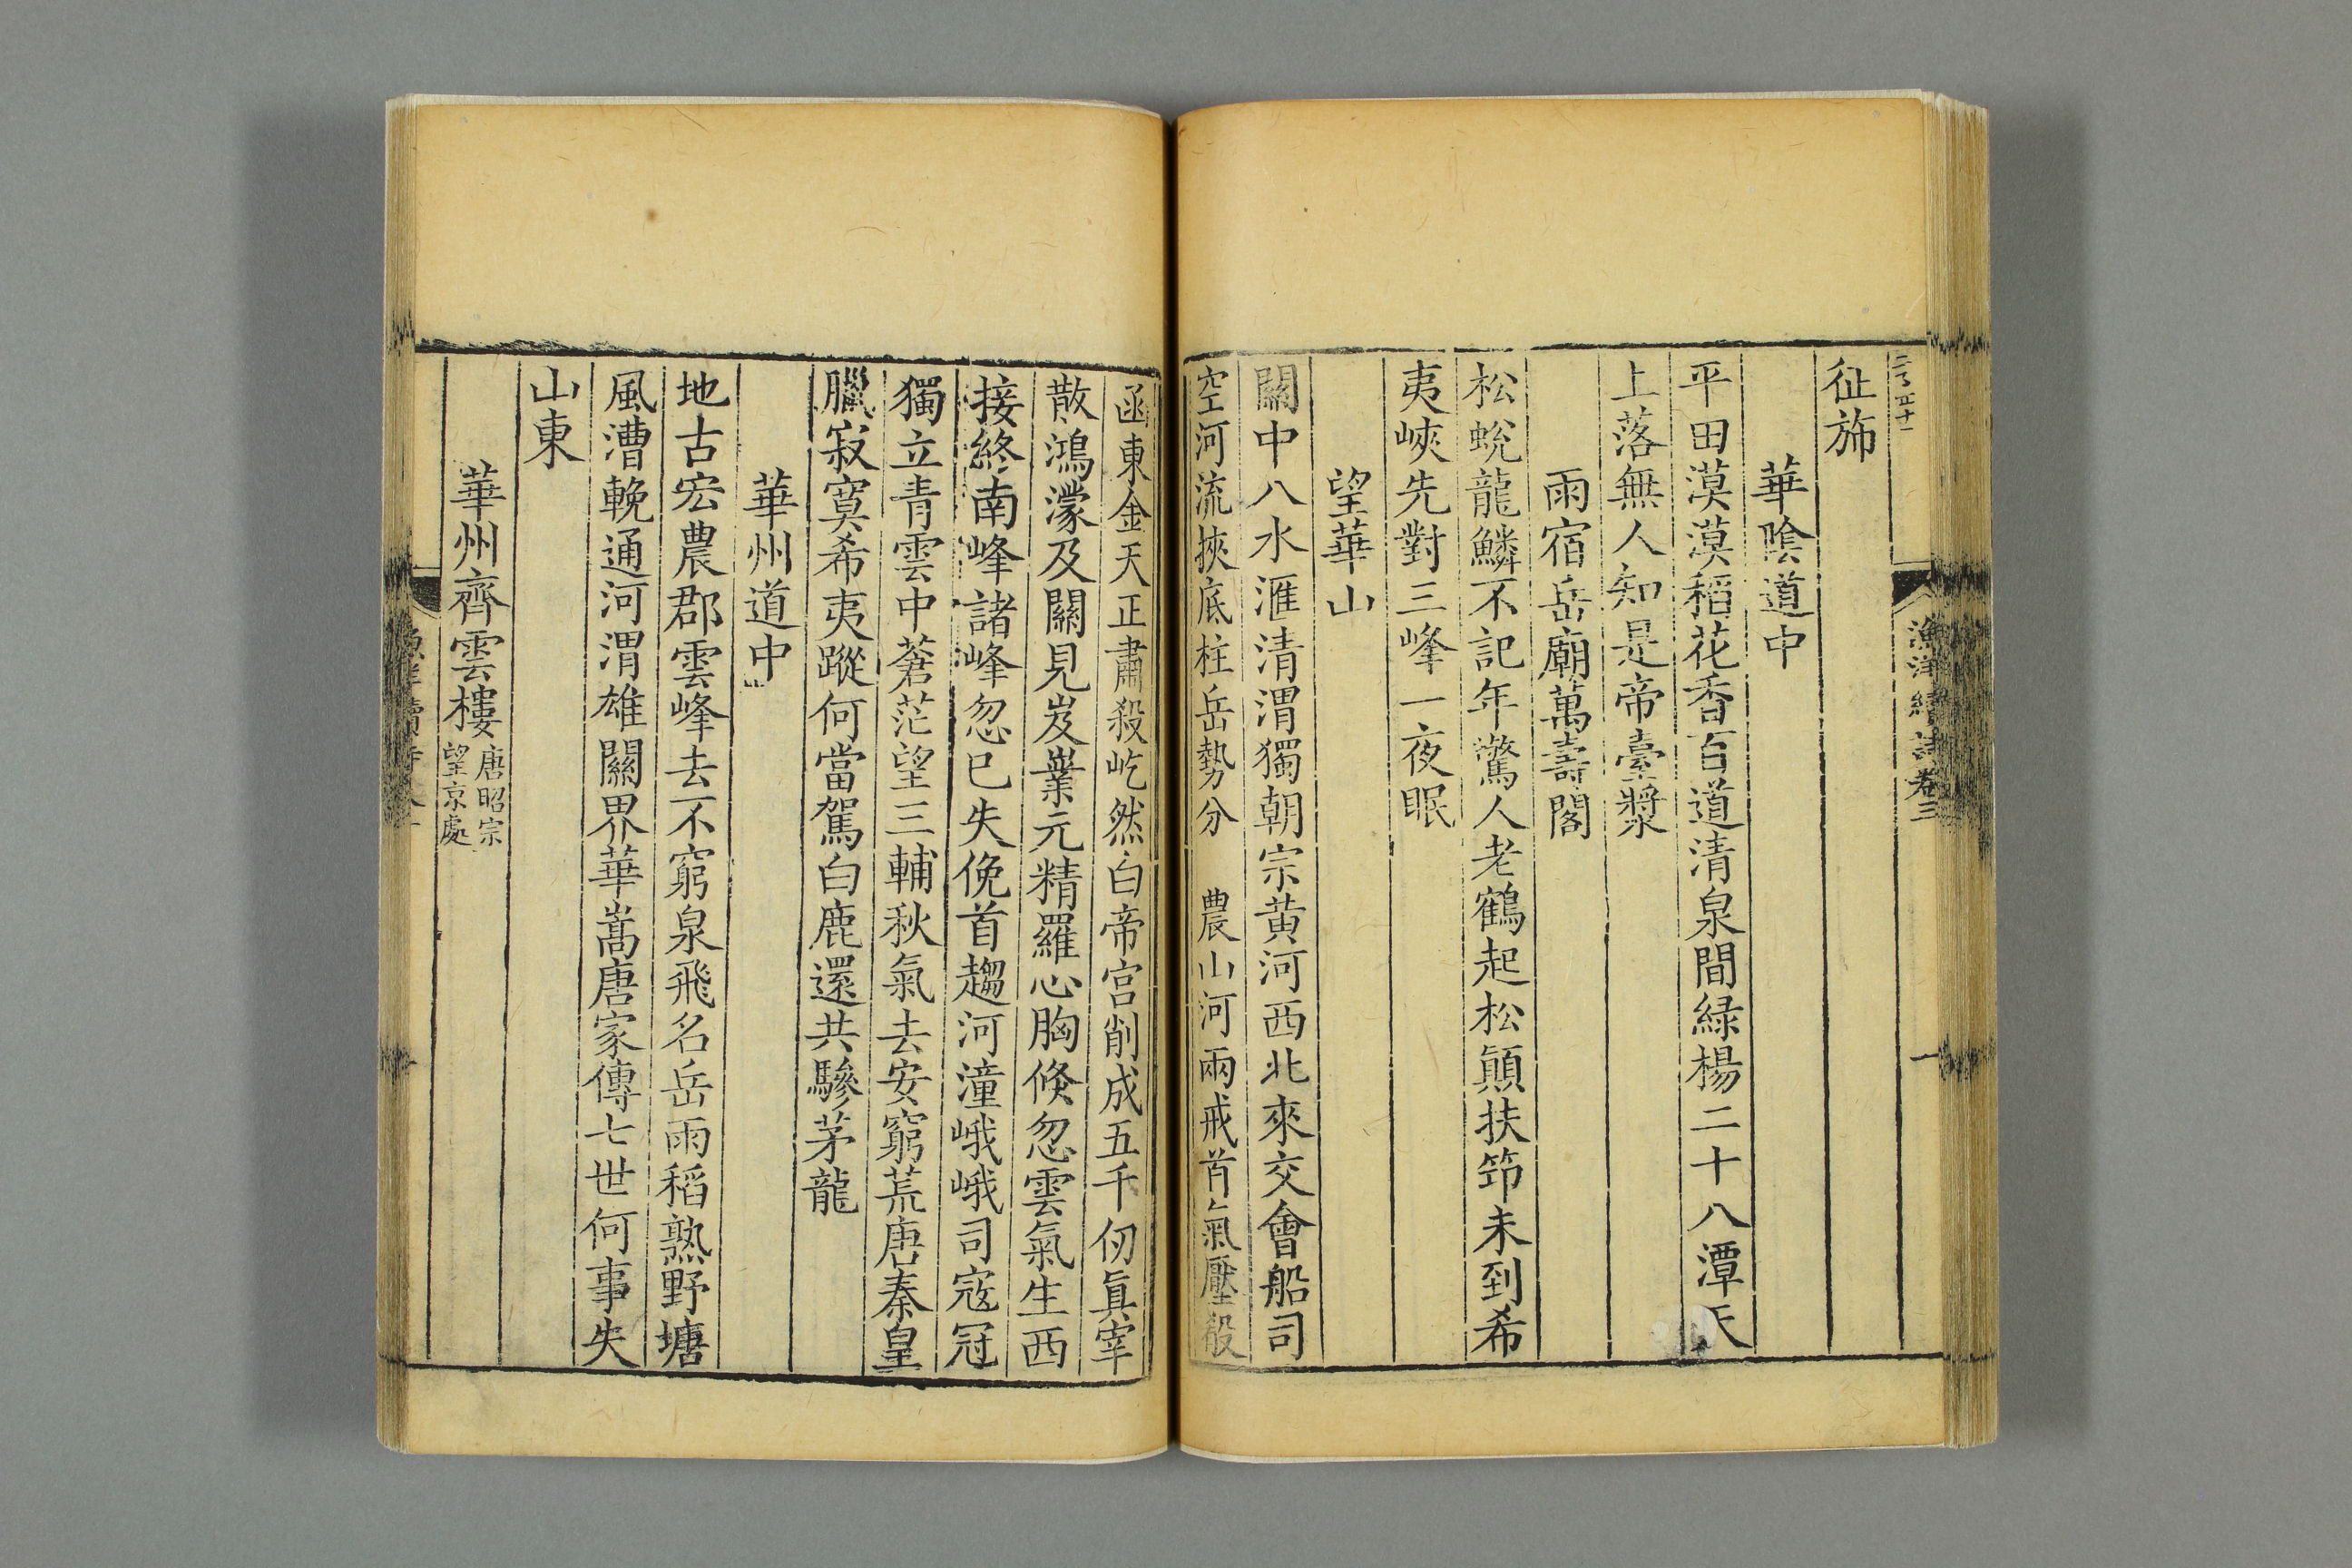 征斾
華陰道中
平田漠漠稻花香百道清泉間緑楊二十八潭天
上落無人知是帝臺漿
雨宿岳廟萬壽閣
松蛻龍鱗不記年驚人老鶴起松顛扶笻未到希
夷峽先對三峰一夜眠
望華山
關中八水滙清渭獨朝宗黄河西北來交會船司
空河流挾底柱岳勢分 農山河兩戒首氣壓殽
函東金天正肅殺屹然白帝宫削成五千仞眞宰
散鴻濛及關見岌嶪元精羅心胸倏忽雲氣生西
接終南峰諸峰忽已失俛首趨河潼峨峨司寇冠
獨立青雲中蒼茫望三輔秋氣去安窮荒唐秦皇
臘寂寞希夷蹤何當駕白鹿還共驂茅龍
華州道中
地古宏農郡雲峰去不窮泉飛名岳雨稻熟野塘
風漕輓通河渭雄關界華嵩唐家傳七世何事失
山東
華州齊雲樓唐昭宗
望京處
漁洋續詩卷三
一